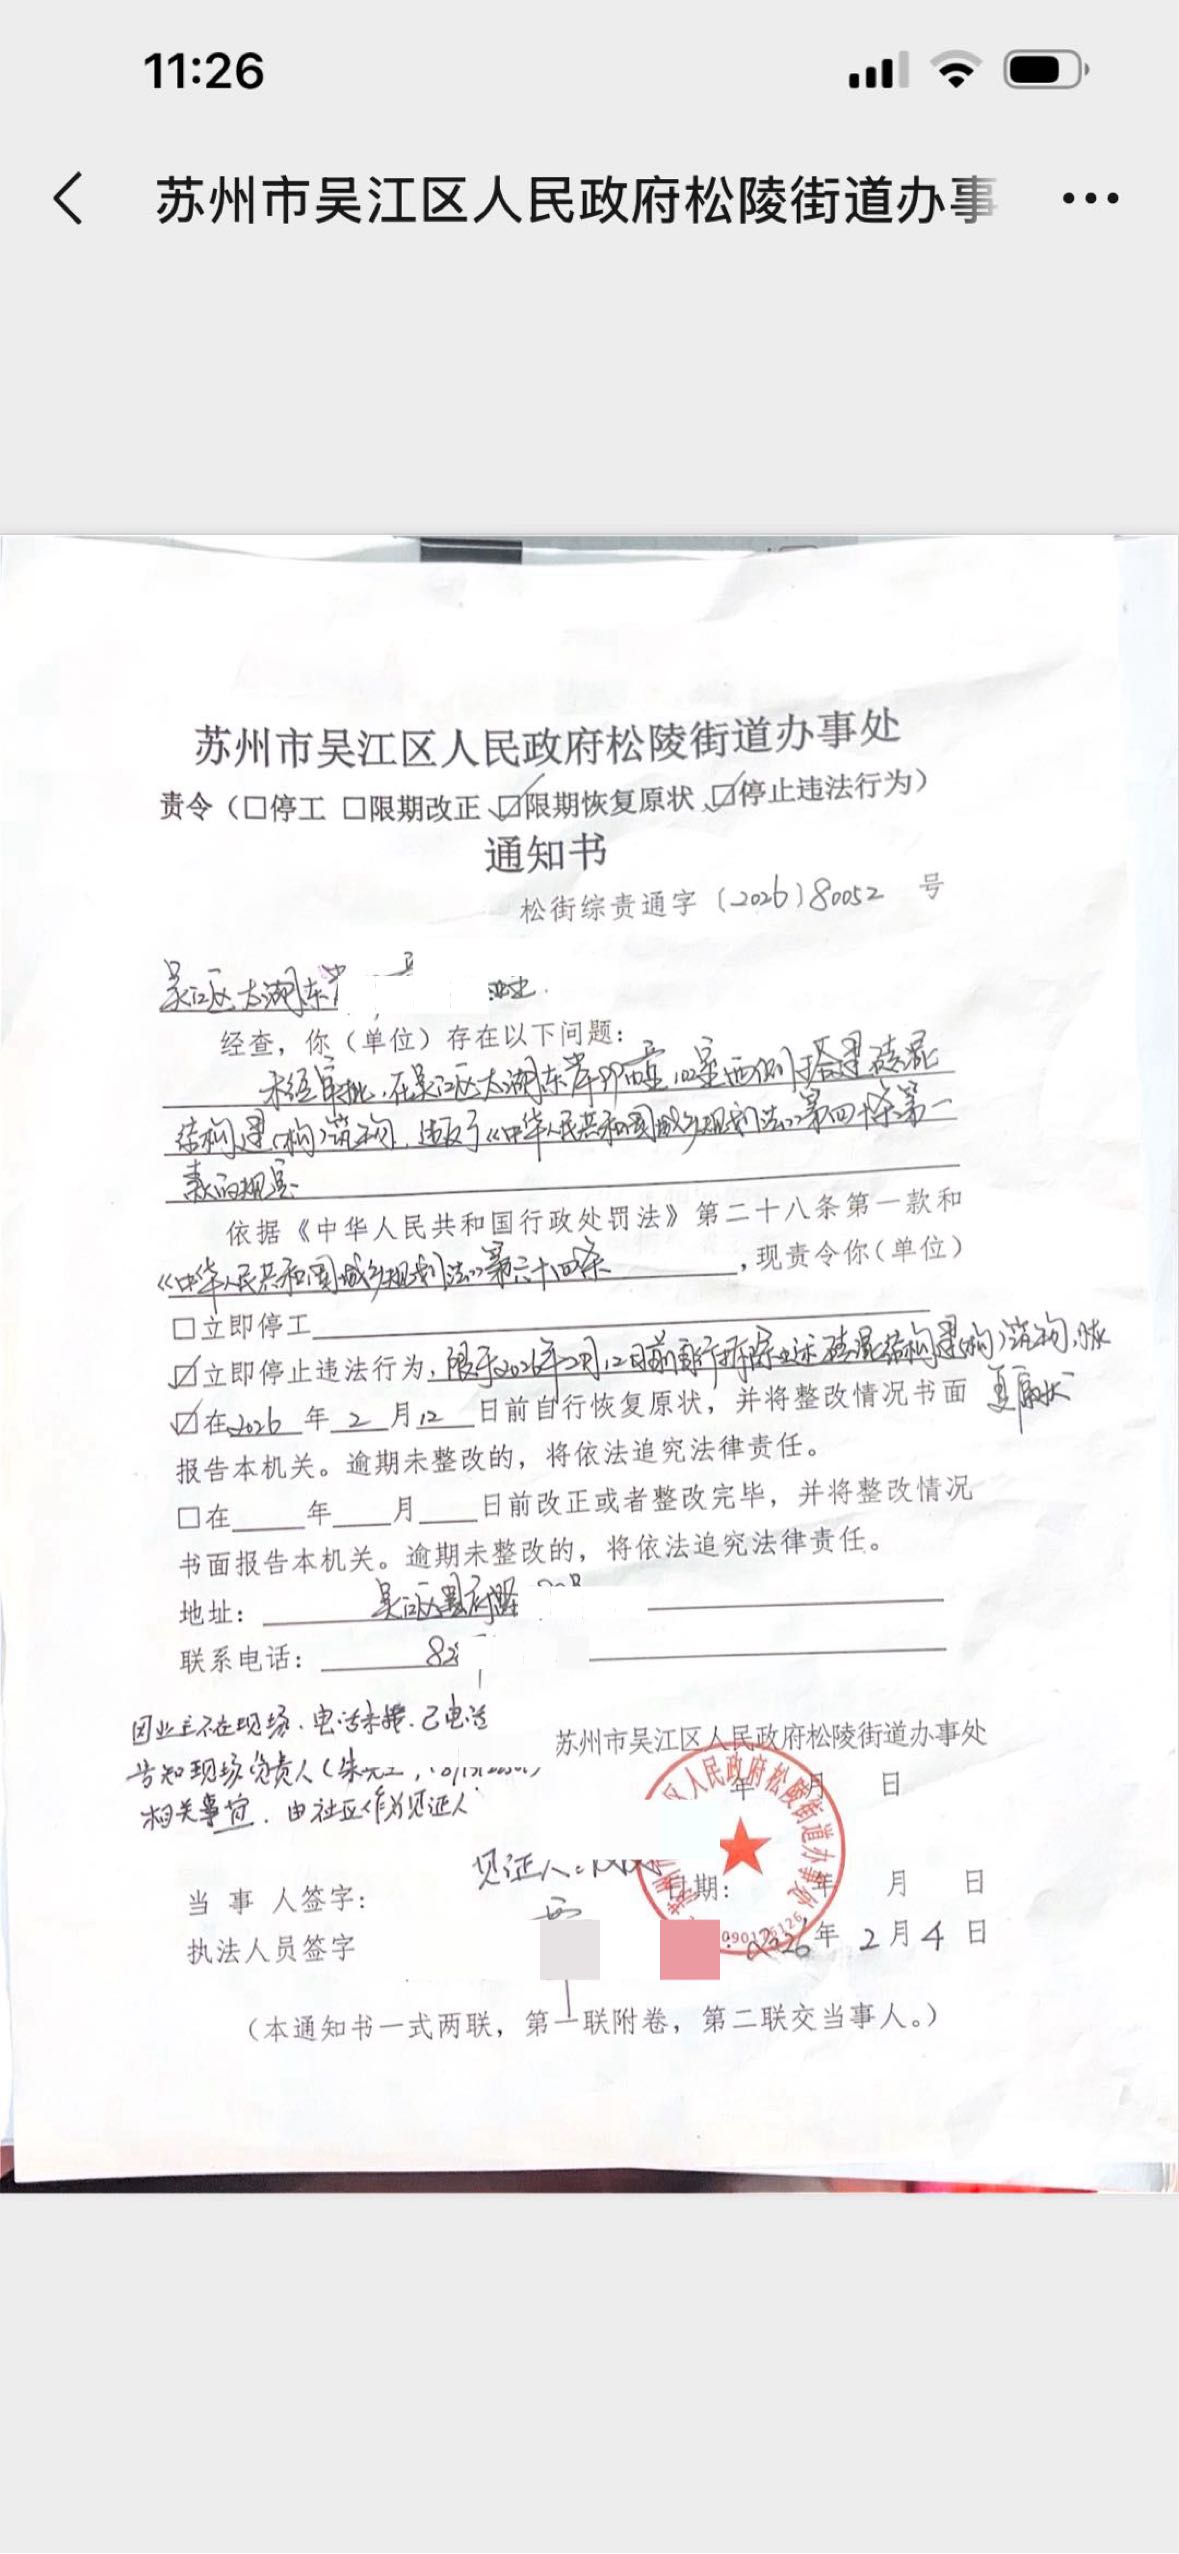 11:26
苏州市吴江区人民政府松陵街道办事
苏州市吴江区人民政府松陵街道办事处
责令（□停工 □限期改正 ☑限期恢复原状 ☑停止违法行为）
通知书
松街综责通字（2026）80052 号
吴江区太湖东岸 业主.
经查，你（单位）存在以下问题：
未经审批，在吴江区太湖东岸 西侧 搭建砖混
结构建（构）筑物，违反了《中华人民共和国城乡规划法》第四十条第一
款的规定.
依据《中华人民共和国行政处罚法》第二十八条第一款和
《中华人民共和国城乡规划法》第六十四条，现责令你（单位）
□立即停工
☑立即停止违法行为，限于2026年2月12日前自行拆除上述砖混结构建（构）筑物，恢
复原状
☑在2026年2月12日前自行恢复原状，并将整改情况书面
报告本机关。逾期未整改的，将依法追究法律责任。
□在 年 月 日前改正或者整改完毕，并将整改情况
书面报告本机关。逾期未整改的，将依法追究法律责任。
地址： 吴江区
联系电话： 82
因业主不在现场、电话未接、已电话
告知现场负责人（朱
相关事宜．由社区作为见证人
苏州市吴江区人民政府松陵街道办事处
年 月 日
见证人：
当 事 人签字：
日期： 年 月 日
执法人员签字
：2026年2月4日
区人民政府松陵街道办事处
（本通知书一式两联，第一联附卷，第二联交当事人。）